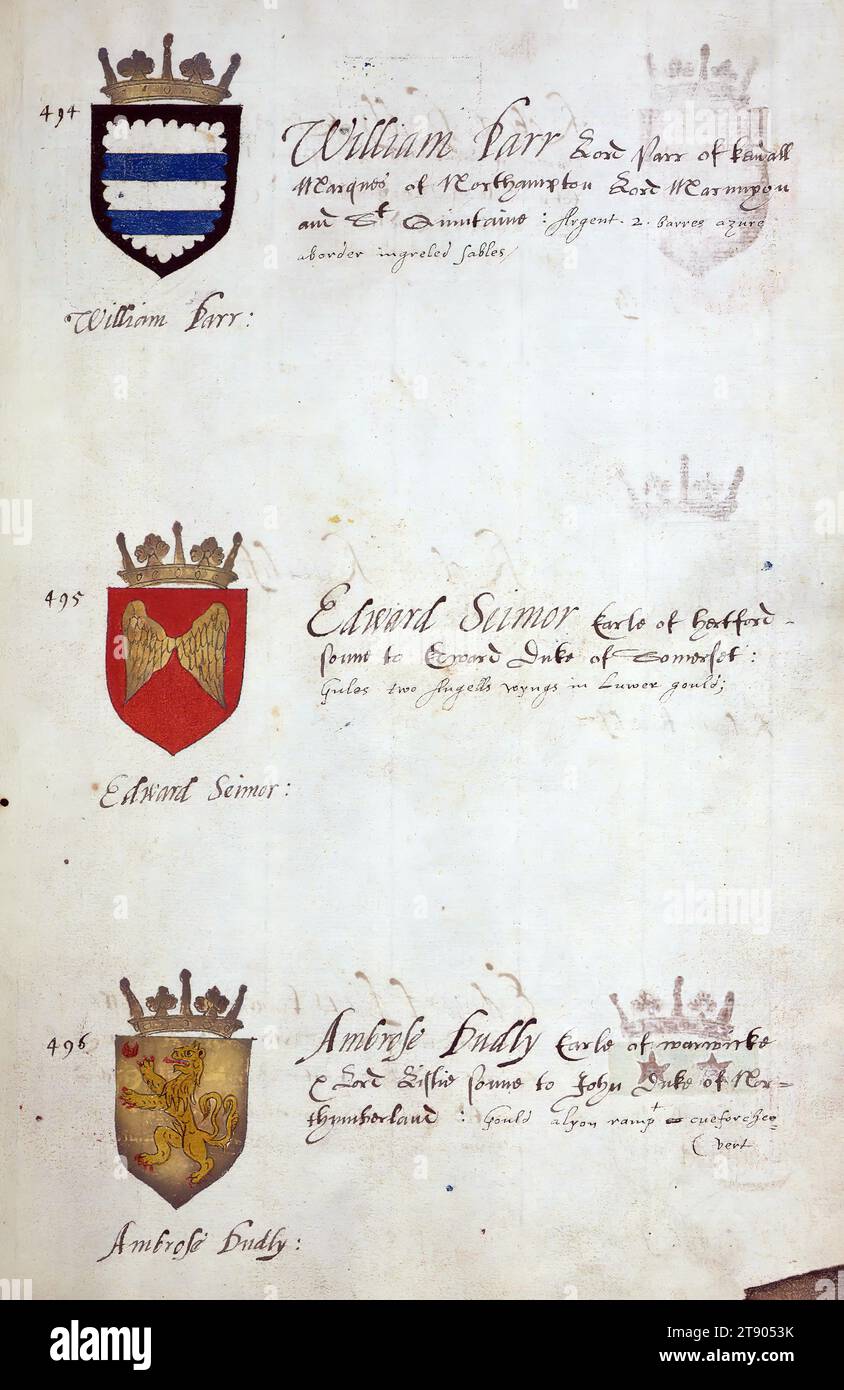 494
William Parr Lord Parr of Kendall
Marques of Northampton Lord Marmyon
and St Quintaine : Argent . 2 . barres azure
aborder ingreled sables
William Parr :
495
Edward Seimor Earle of hertford
sonne to Edward Duke of Somerset :
Gules two Angells wyngs in Luwer gould ;
Edward Seimor :
496
Ambrose Dudly Earle of warwicke
& Lord Lislie sonne to John Duke of Nor=
thymberland : Gould alyon ramp
vert
Ambrose Dudly :
alamy
alamy
Image ID: 2T9053K
www.alamy.com